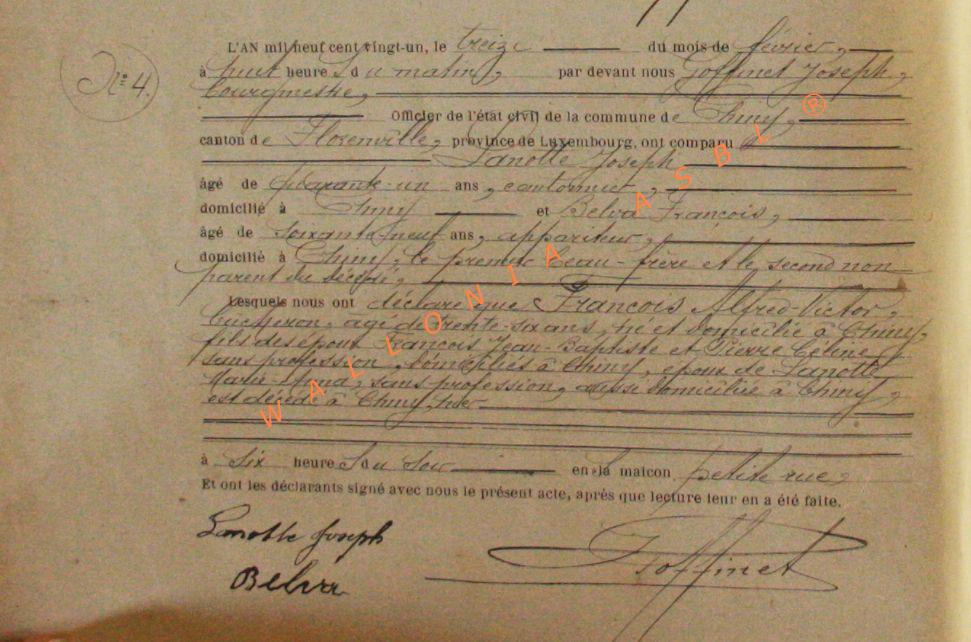 N° 4.
L'AN mil neuf cent vingt-un, le treize du mois de février,
à huit heures du matin, par devant nous Goffinet Joseph,
bourgmestre,
Officier de l'état civil de la commune de Chiny,
canton de Florenville, province de Luxembourg, ont comparu
Lanotte Joseph
âgé de quarante-un ans, cantonnier,
domicilié à Chiny et Belva François,
âgé de soixante neuf ans, appariteur,
domicilié à Chiny, le premier beau-frère et le second non
parent du décédé,
Lesquels nous ont déclaré que François Alfred-Victor,
bucheron, âgé de trente-six ans, né et domicilié à Chiny,
fils des époux François Jean-Baptiste et Pierre Céline
sans profession, domiciliés à Chiny, époux de Lanotte
Marie, sans profession, aussi domiciliée à Chiny,
est décédé à Chiny, hier
à six heures du soir en la maison petite rue,
Et ont les déclarants signé avec nous le présent acte, après que lecture leur en a été faite.
Lanotte Joseph
Goffinet
Belva
WALLONIA ASBL ®